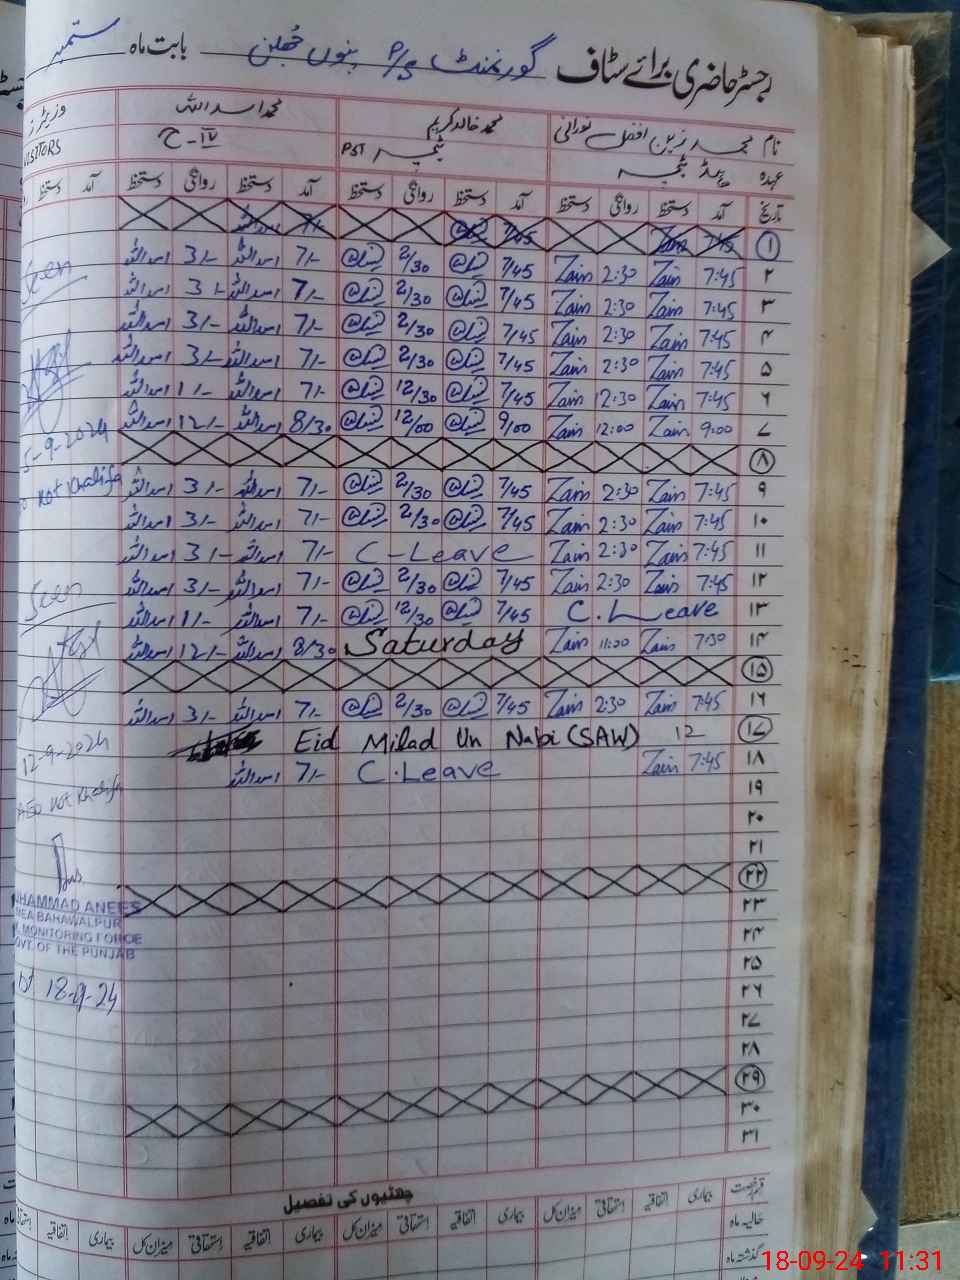 رجسٹر حاضری برائے سٹاف گورنمنٹ P/S بابت ماہ ستمبر
نام محمد زین افضل نورانی محمد خالد کریم محمد اسد اللہ
عہدہ ہیڈ ٹیچر PST ٹیچر IV
VISITORS
تاریخ آمد دستخط روانگی دستخط آمد دستخط روانگی دستخط آمد دستخط روانگی دستخط آمد دستخط
۱ 7:45 Zain 7/45 7/- اسد اللہ
۲ 7:45 Zain 2:30 Zain 7/45 2/30 7/- اسد اللہ 3/- اسد اللہ
Seen
۳ 7:45 Zain 2:30 Zain 7/45 2/30 7/- اسد اللہ 3/- اسد اللہ
۴ 7:45 Zain 2:30 Zain 7/45 2/30 7/- اسد اللہ 3/- اسد اللہ
۵ 7:45 Zain 2:30 Zain 7/45 2/30 7/- اسد اللہ 3/- اسد اللہ
۶ 7:45 Zain 12:30 Zain 7/45 12/30 7/- اسد اللہ 1/- اسد اللہ
۷ 9:00 Zain 12:00 Zain 9/00 12/00 8/30 اسد اللہ 12/- اسد اللہ
5-9-2024
۸
۹ 7:45 Zain 2:30 Zain 7/45 2/30 7/- اسد اللہ 3/- اسد اللہ
Kot Khalifa
۱۰ 7:45 Zain 2:30 Zain 7/45 2/30 7/- اسد اللہ 3/- اسد اللہ
۱۱ 7:45 Zain 2:30 Zain C-Leave 7/- اسد اللہ 3/- اسد اللہ
۱۲ 7:45 Zain 2:30 Zain 7/45 2/30 7/- اسد اللہ 3/- اسد اللہ
Seen
۱۳ C.Leave 7/45 12/30 7/- اسد اللہ 1/- اسد اللہ
۱۴ 7:30 Zain 11:30 Zain Saturday 8/30 اسد اللہ 12/- اسد اللہ
۱۵
۱۶ 7:45 Zain 2:30 Zain 7/45 2/30 7/- اسد اللہ 3/- اسد اللہ
۱۷ Eid Milad Un Nabi (SAW) 12
12-9-2024
۱۸ 7:45 Zain C.Leave 7/- اسد اللہ
AEO Kot Khalifa
۱۹
۲۰
۲۱
۲۲
۲۳
MUHAMMAD ANEES
MEA BAHAWALPUR
۲۴
MONITORING FORCE
GOVT. OF THE PUNJAB
۲۵
۲۶
18-9-24
۲۷
۲۸
۲۹
۳۰
۳۱
چھٹیوں کی تفصیل
قسم رخصت بیماری اتفاقیہ استحقاقی میزان کل بیماری اتفاقیہ استحقاقی میزان کل بیماری اتفاقیہ استحقاقی میزان کل بیماری اتفاقیہ
حالیہ ماہ
گذشتہ ماہ
18-09-24 11:31